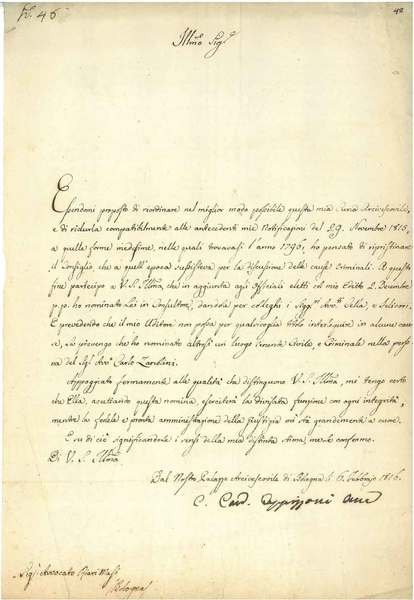 N. 46
42
Illmo Sigre
Essendomi proposto di riordinare nel miglior modo possibile questa mia Curia Arcivescovile,
e di ridurla compatibilmente alle antecedenti mie Notificazioni del 29. Novembre 1815,
a quelle forme medesime, nelle quali trovavasi l'anno 1796, ho pensato di ripristinare
il Consiglio, che a quell'epoca sussisteva per la discussione delle cause Criminali. A questo
fine partecipo a V. S. Illma che in aggiunta agli Officiali eletti col mio Editto 2. Decembre
p.po. ho nominato Lei in Consultore, dandole per colleghi i Sigri Avvti Cella, e
E prevedendo che il mio Auditore non possa per qualsivoglia titolo intervenire in alcune cause,
La prevengo che ho nominato altresì un Luogo tenente Civile, e Criminale nella perso-
na del Sigr Avvo Carlo Zanolini.
Appoggiato fermamente alle qualità che distinguono V. S. Illma, mi tengo certo
che Ella, accettando questa nomina, eserciterà la divisata funzione con ogni integrità,
mentre la fedele e pronta amministrazione della giustizia mi stà grandemente a cuore.
E su di ciò significandole i sensi della mia distinta stima, me le confermo.
Di V. S. Illma
Dal Nostro Palazzo Arcivescovile di Bologna li 6. Febbrajo 1816.
C. Card. Oppizzoni Arciv
Sigr Avvocato
Bologna